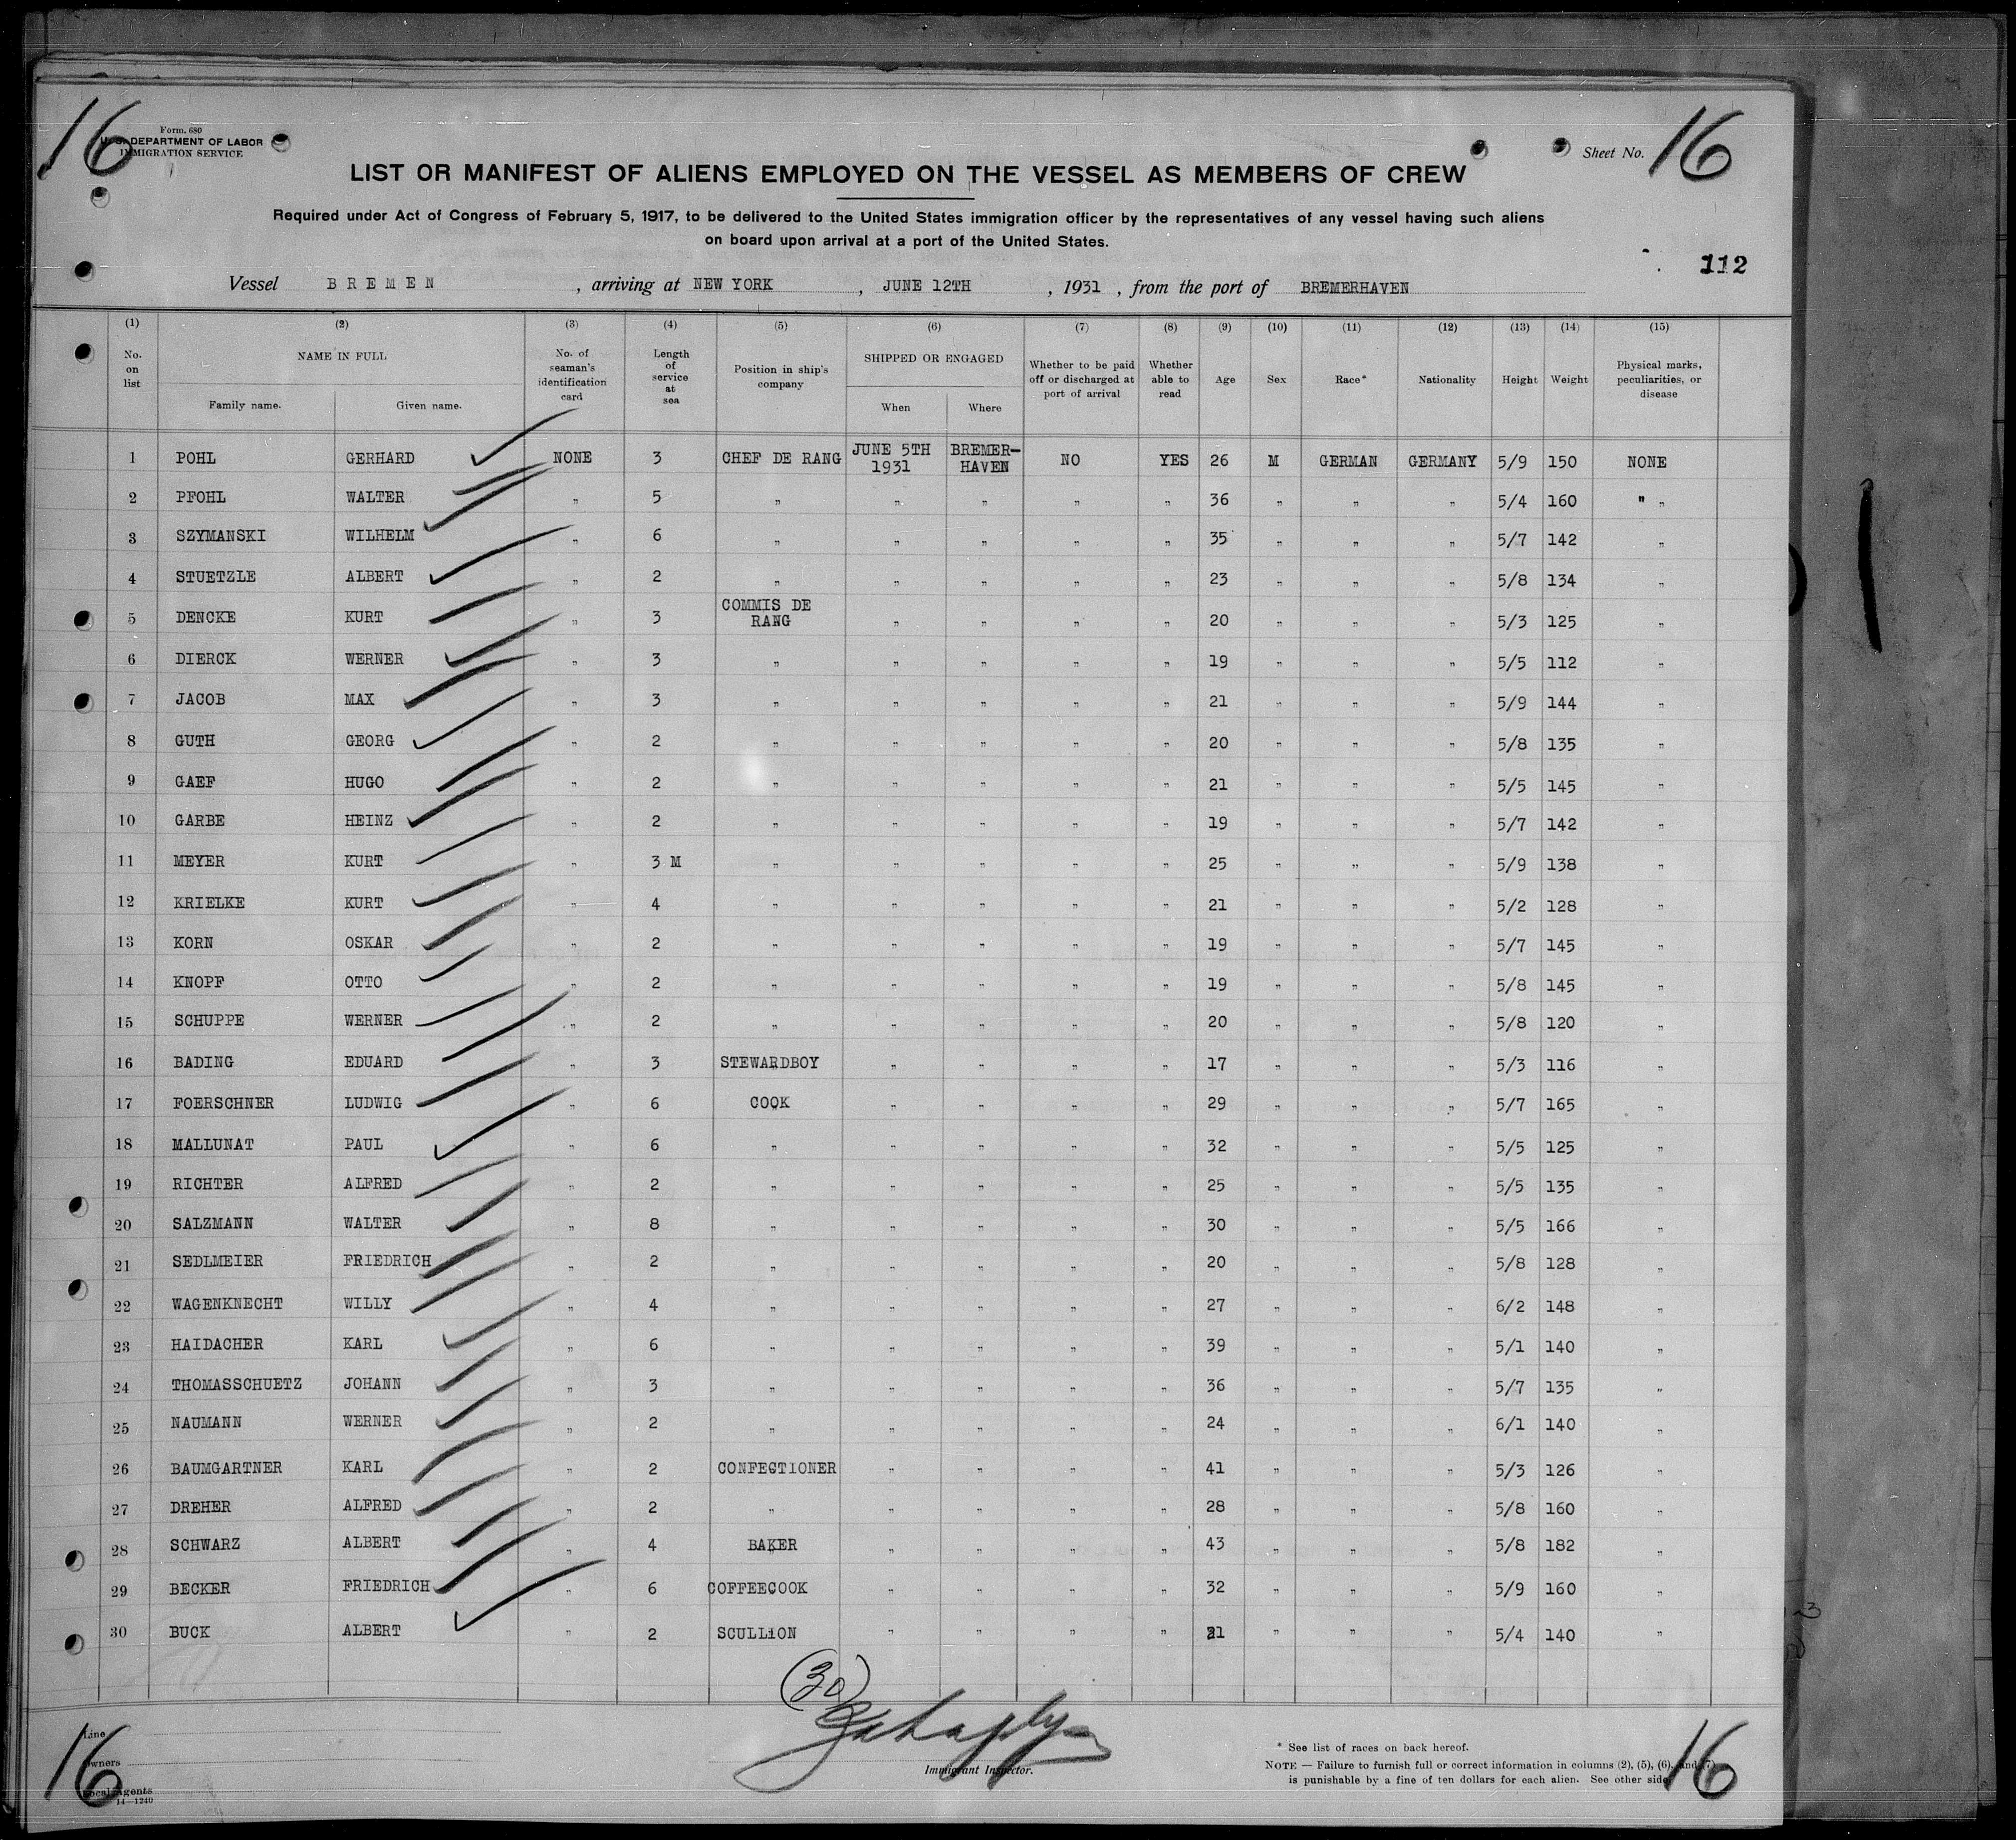 16
Form. 680
U. S. DEPARTMENT OF LABOR
IMMIGRATION SERVICE
Sheet No. 16
LIST OR MANIFEST OF ALIENS EMPLOYED ON THE VESSEL AS MEMBERS OF CREW
Required under Act of Congress of February 5, 1917, to be delivered to the United States immigration officer by the representatives of any vessel having such aliens
on board upon arrival at a port of the United States.
112
Vessel BREMEN , arriving at NEW YORK , JUNE 12TH , 1931 , from the port of BREMERHAVEN
(1) (2) (3) (4) (5) (6) (7) (8) (9) (10) (11) (12) (13) (14) (15)
No. on list NAME IN FULL Family name. Given name. No. of seaman's identification card Length of service at sea Position in ship's company SHIPPED OR ENGAGED When Where Whether to be paid off or discharged at port of arrival Whether able to read Age Sex Race* Nationality Height Weight Physical marks, peculiarities, or disease
1 POHL GERHARD NONE 3 CHEF DE RANG JUNE 5TH 1931 BREMER-HAVEN NO YES 26 M GERMAN GERMANY 5/9 150 NONE
2 PFOHL WALTER " 5 " " " " " 36 " " " 5/4 160 " "
3 SZYMANSKI WILHELM " 6 " " " " " 35 " " " 5/7 142 "
4 STUETZLE ALBERT " 2 " " " " " 23 " " " 5/8 134 "
5 DENCKE KURT " 3 COMMIS DE RANG " " " " 20 " " " 5/3 125 "
6 DIERCK WERNER " 3 " " " " " 19 " " " 5/5 112 "
7 JACOB MAX " 3 " " " " " 21 " " " 5/9 144 "
8 GUTH GEORG " 2 " " " " " 20 " " " 5/8 135 "
9 GAEF HUGO " 2 " " " " " 21 " " " 5/5 145 "
10 GARBE HEINZ " 2 " " " " " 19 " " " 5/7 142 "
11 MEYER KURT " 3 M " " " " " 25 " " " 5/9 138 "
12 KRIELKE KURT " 4 " " " " " 21 " " " 5/2 128 "
13 KORN OSKAR " 2 " " " " " 19 " " " 5/7 145 "
14 KNOPF OTTO " 2 " " " " " 19 " " " 5/8 145 "
15 SCHUPPE WERNER " 2 " " " " " 20 " " " 5/8 120 "
16 BADING EDUARD " 3 STEWARDBOY " " " " 17 " " " 5/3 116 "
17 FOERSCHNER LUDWIG " 6 COOK " " " " 29 " " " 5/7 165 "
18 MALLUNAT PAUL " 6 " " " " " 32 " " " 5/5 125 "
19 RICHTER ALFRED " 2 " " " " " 25 " " " 5/5 135 "
20 SALZMANN WALTER " 8 " " " " " 30 " " " 5/5 166 "
21 SEDLMEIER FRIEDRICH " 2 " " " " " 20 " " " 5/8 128 "
22 WAGENKNECHT WILLY " 4 " " " " " 27 " " " 6/2 148 "
23 HAIDACHER KARL " 6 " " " " " 39 " " " 5/1 140 "
24 THOMASSCHUETZ JOHANN " 3 " " " " " 36 " " " 5/7 135 "
25 NAUMANN WERNER " 2 " " " " " 24 " " " 6/1 140 "
26 BAUMGARTNER KARL " 2 CONFECTIONER " " " " 41 " " " 5/3 126 "
27 DREHER ALFRED " 2 " " " " " 28 " " " 5/8 160 "
28 SCHWARZ ALBERT " 4 BAKER " " " " 43 " " " 5/8 182 "
29 BECKER FRIEDRICH " 6 COFFEECOOK " " " " 32 " " " 5/9 160 "
30 BUCK ALBERT " 2 SCULLION " " " " 21 " " " 5/4 140 "
(30)
Immigrant Inspector.
Line
Owners
Local Agents
14—1240
16
* See list of races on back hereof.
NOTE — Failure to furnish full or correct information in columns (2), (5), (6), and (7)
is punishable by a fine of ten dollars for each alien. See other side.
16